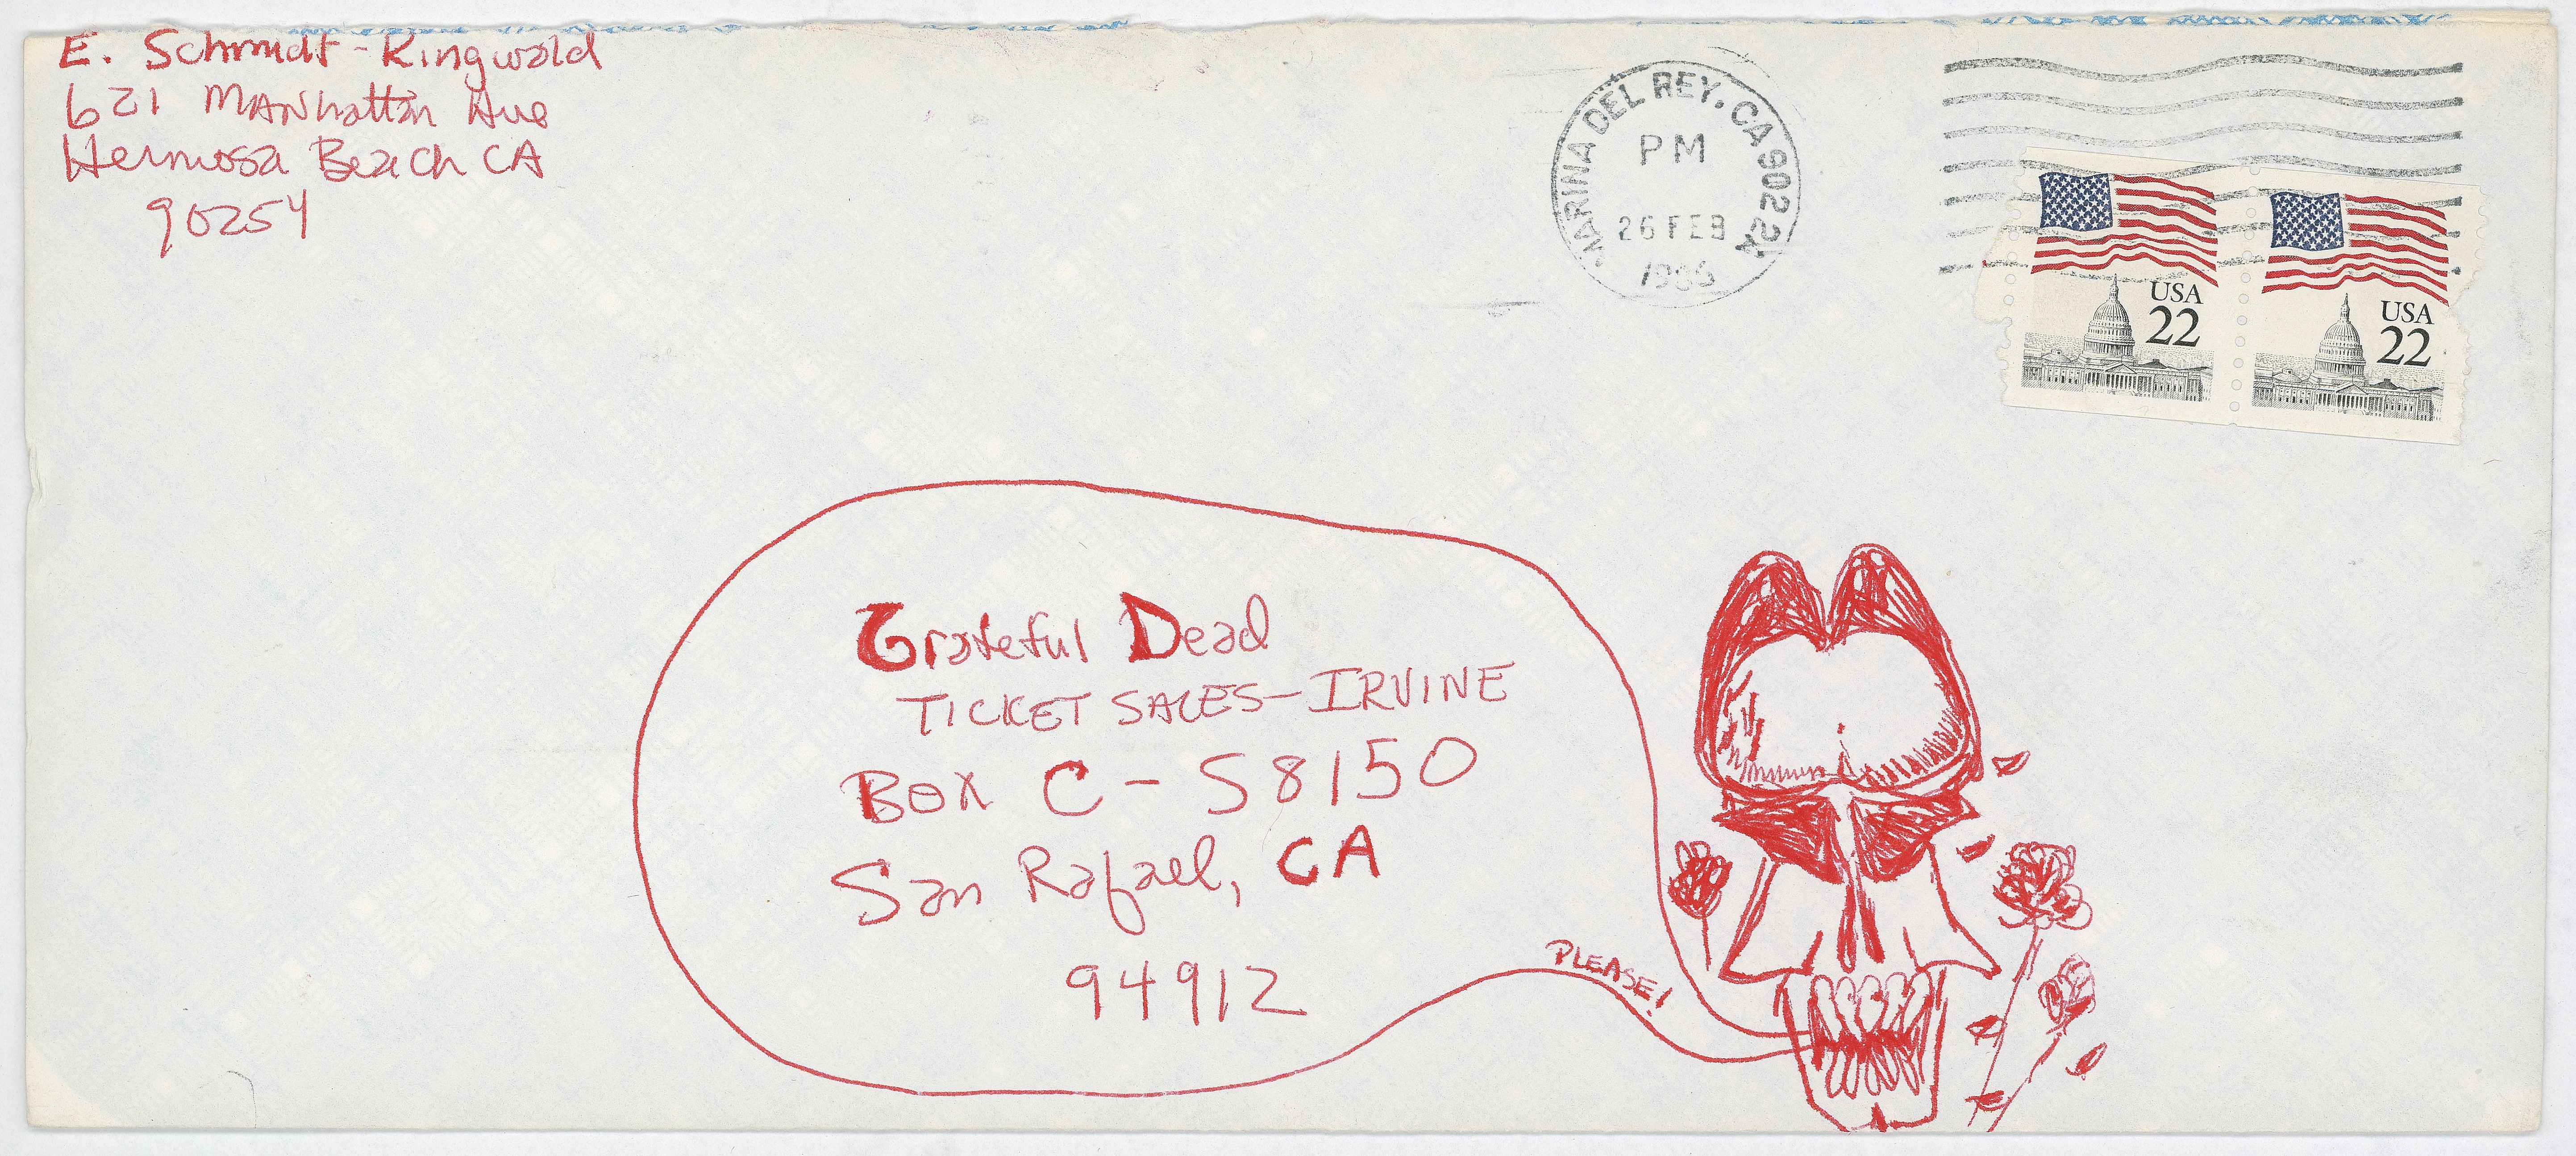 E. Schmidt-Ringwald
621 MANhattan Ave
Hermosa Beach CA
90254
MARINA DEL REY. CA 902 2A
PM
26 FEB
1986
USA
22
USA
22
Grateful Dead
TICKET SALES-IRVINE
Box C-S8150
San Rafael, CA
94912
PLEASE!